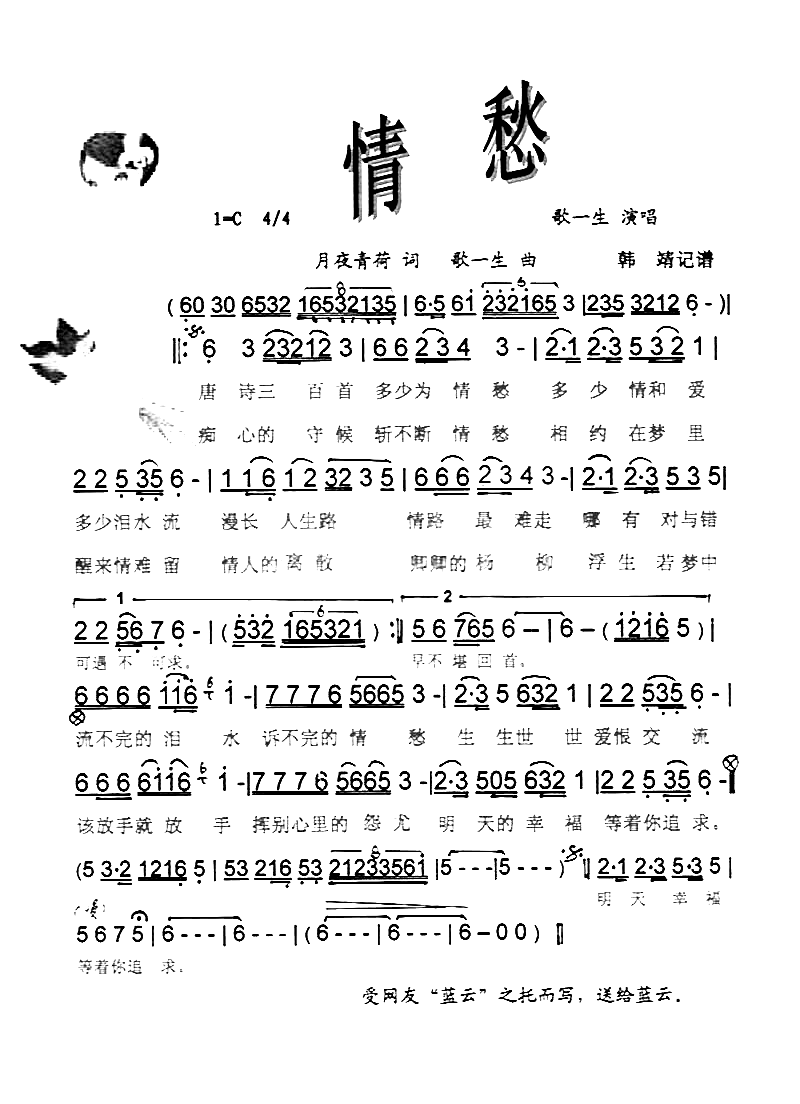 情愁
1=C 4/4 歌一生 演唱
月夜青荷 词 歌一生 曲 韩 靖记谱
8 6
( 60 30 6532 16532135 | 6·5 61 232165 3 | 235 3212 6 - )|
‖: 6 3 23212 3 | 6 6 2 3 4 3 - | 2·1 2·3 5 3 2 1 |
唐 诗三 百首 多少为 情 愁 多 少 情和 爱
痴 心的 守候 斩不断 情 愁 相 约 在梦 里
2 2 5 35 6 - | 1 1 6 1 2 323 5 | 6 6 6 2 3 4 3 - | 2·1 2·3 5 3 5 |
多少泪水 流 漫长 人生路 情路 最 难走 哪 有 对与错
醒来情难 留 情人的 离散 卿卿的 杨 柳 浮 生 若梦中
1 2
2 2 56 7 6 - | ( 532 165321 ) :‖ 5 6 765 6 - | 6 - ( 1216 5 ) |
6
可遇 不 可求。 早不 堪 回 首。
6 6 6 6 116 6 1 - | 7 7 7 6 5665 3 - | 2·3 5 632 1 | 2 2 535 6 - |
流不完的 泪 水 诉不完的 情 愁 生 生世 世 爱恨 交 流
6 6 6 6116 6 1 - | 7 7 7 6 5665 3 - | 2·3 505 632 1 | 2 2 5 35 6 - ‖
该放手就 放 手 挥别心里的 怨 尤 明 天的 幸 福 等着你追 求。
8
( 5 3·2 1216 5 | 53 216 53 21233561 | 5 - - - | 5 - - - ) ‖ 2·1 2·3 5·3 5 |
明 天 幸 福
5 6 7 5 | 6 - - - | 6 - - - | ( 6 - - - | 6 - - - | 6 - 0 0 ) ‖
等着你追 求。
受网友“蓝云”之托而写，送给蓝云．